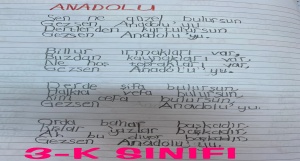 ANADOLU
Sen ne güzel bulursun
Gezsen Anadolu'yu.
Dertlerden kurtulursun
Gezsen Anadolu'yu.
Billur ırmakları var,
Buzdan kaynakları var,
Ne hoş toprakları var,
Gezsen Anadolu'yu.
Derde şifa bulursun,
Halkla vefa bulursun,
cefa bulursun,
Gezsen Anadolu'yu.
Orda bahar başkadır,
Kışlar yazlar başkadır,
Ah bu diyar başkadır,
Gezsen Anadolu'yu.
3-K SINIFI